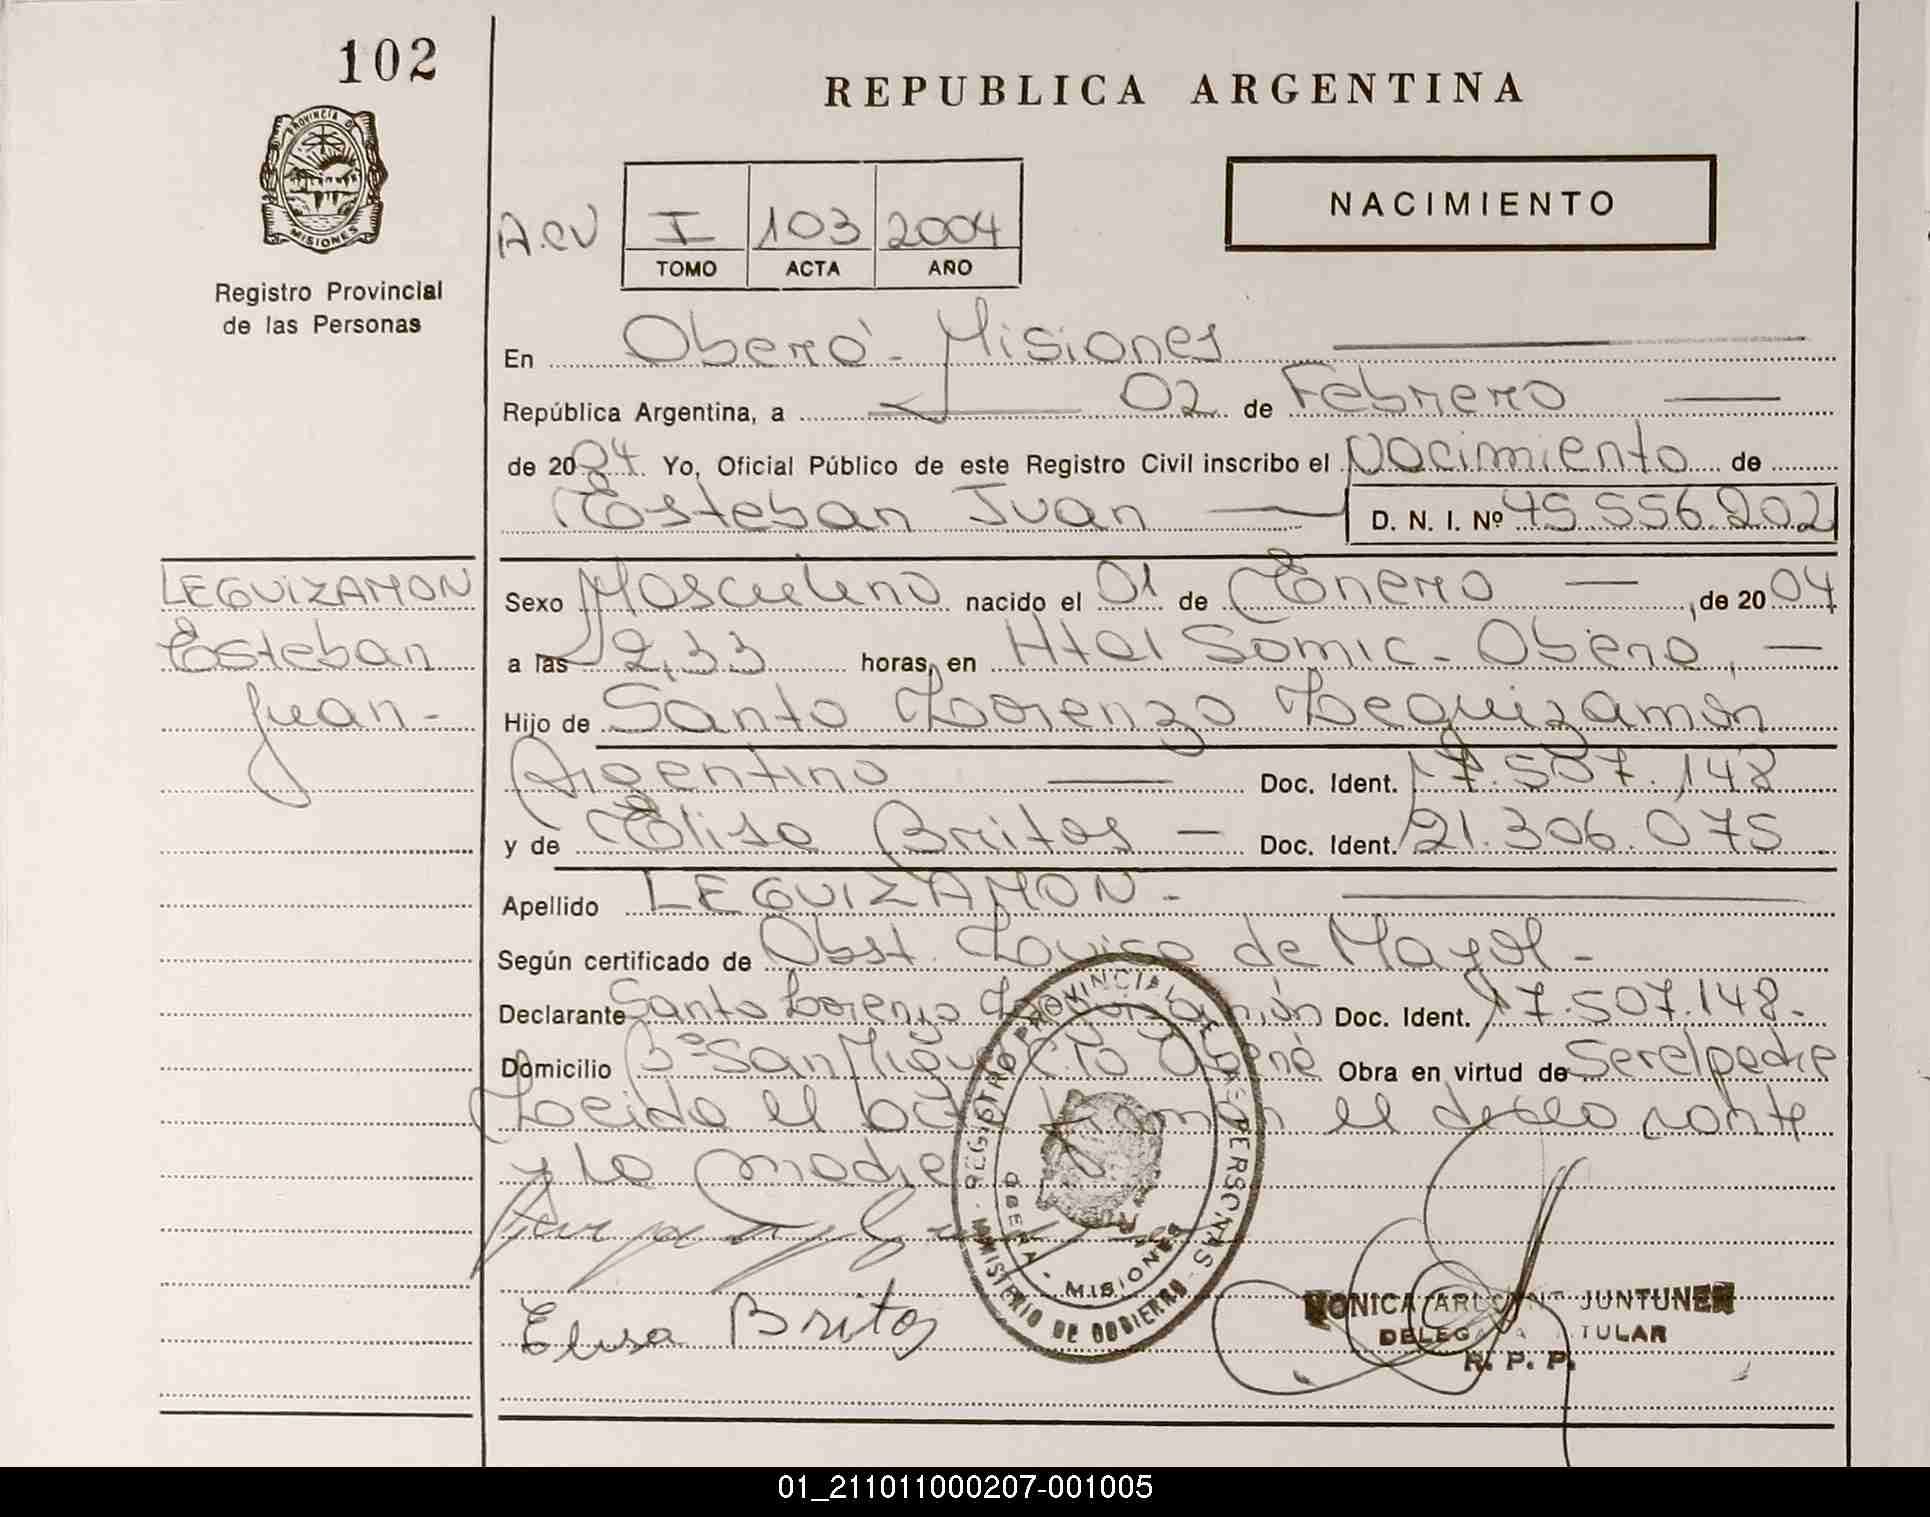 102
REPUBLICA ARGENTINA
PROVINCIA DE
MISIONES
Registro Provincial
de las Personas
NACIMIENTO
A.CV
I 103 2004
TOMO ACTA AÑO
En Oberá - Misiones
República Argentina, a 02 de Febrero
de 2004. Yo, Oficial Público de este Registro Civil inscribo el Nacimiento de
Esteban Juan D. N. I. Nº 45.556.202
LEGUIZAMON
Esteban
Juan -
Sexo Masculino nacido el 01 de Enero, de 2004
a las 12,33 horas, en Htal Samic - Oberá, —
Hijo de Santo Lorenzo Leguizamón
Argentino — Doc. Ident. 17.507.148
y de Elisa Britos — Doc. Ident. 21.306.075
Apellido LEGUIZAMON -
Según certificado de Obst. de Mayol -
Declarante Santo Lorenzo Leguizamón Doc. Ident. 17.507.148.
Domicilio Bº San Miguel Oberá Obra en virtud de Ser el padre
Leida el acta firman el declarante
y la madre
Elisa Britos
REGISTRO PROVINCIAL DE LAS PERSONAS
OBERA - MISIONES
MINISTERIO DE GOBIERNO
MONICA JUNTUNEN
DELEGADA TITULAR
R. P. P.
01_211011000207-001005